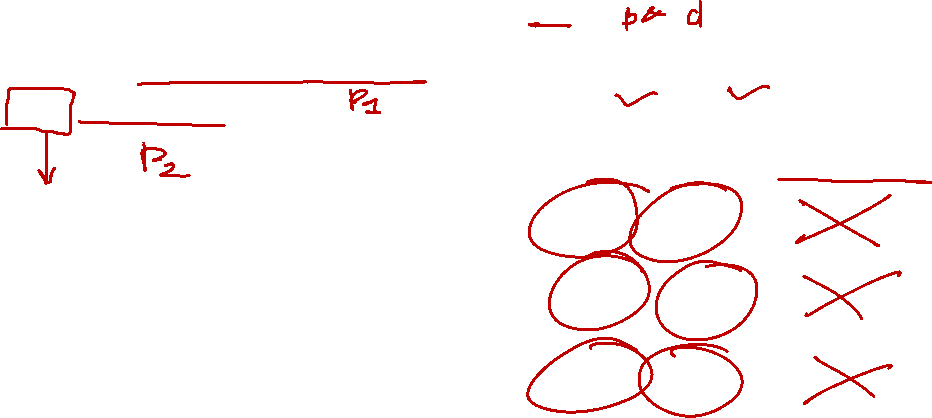 p& d
P1
P2